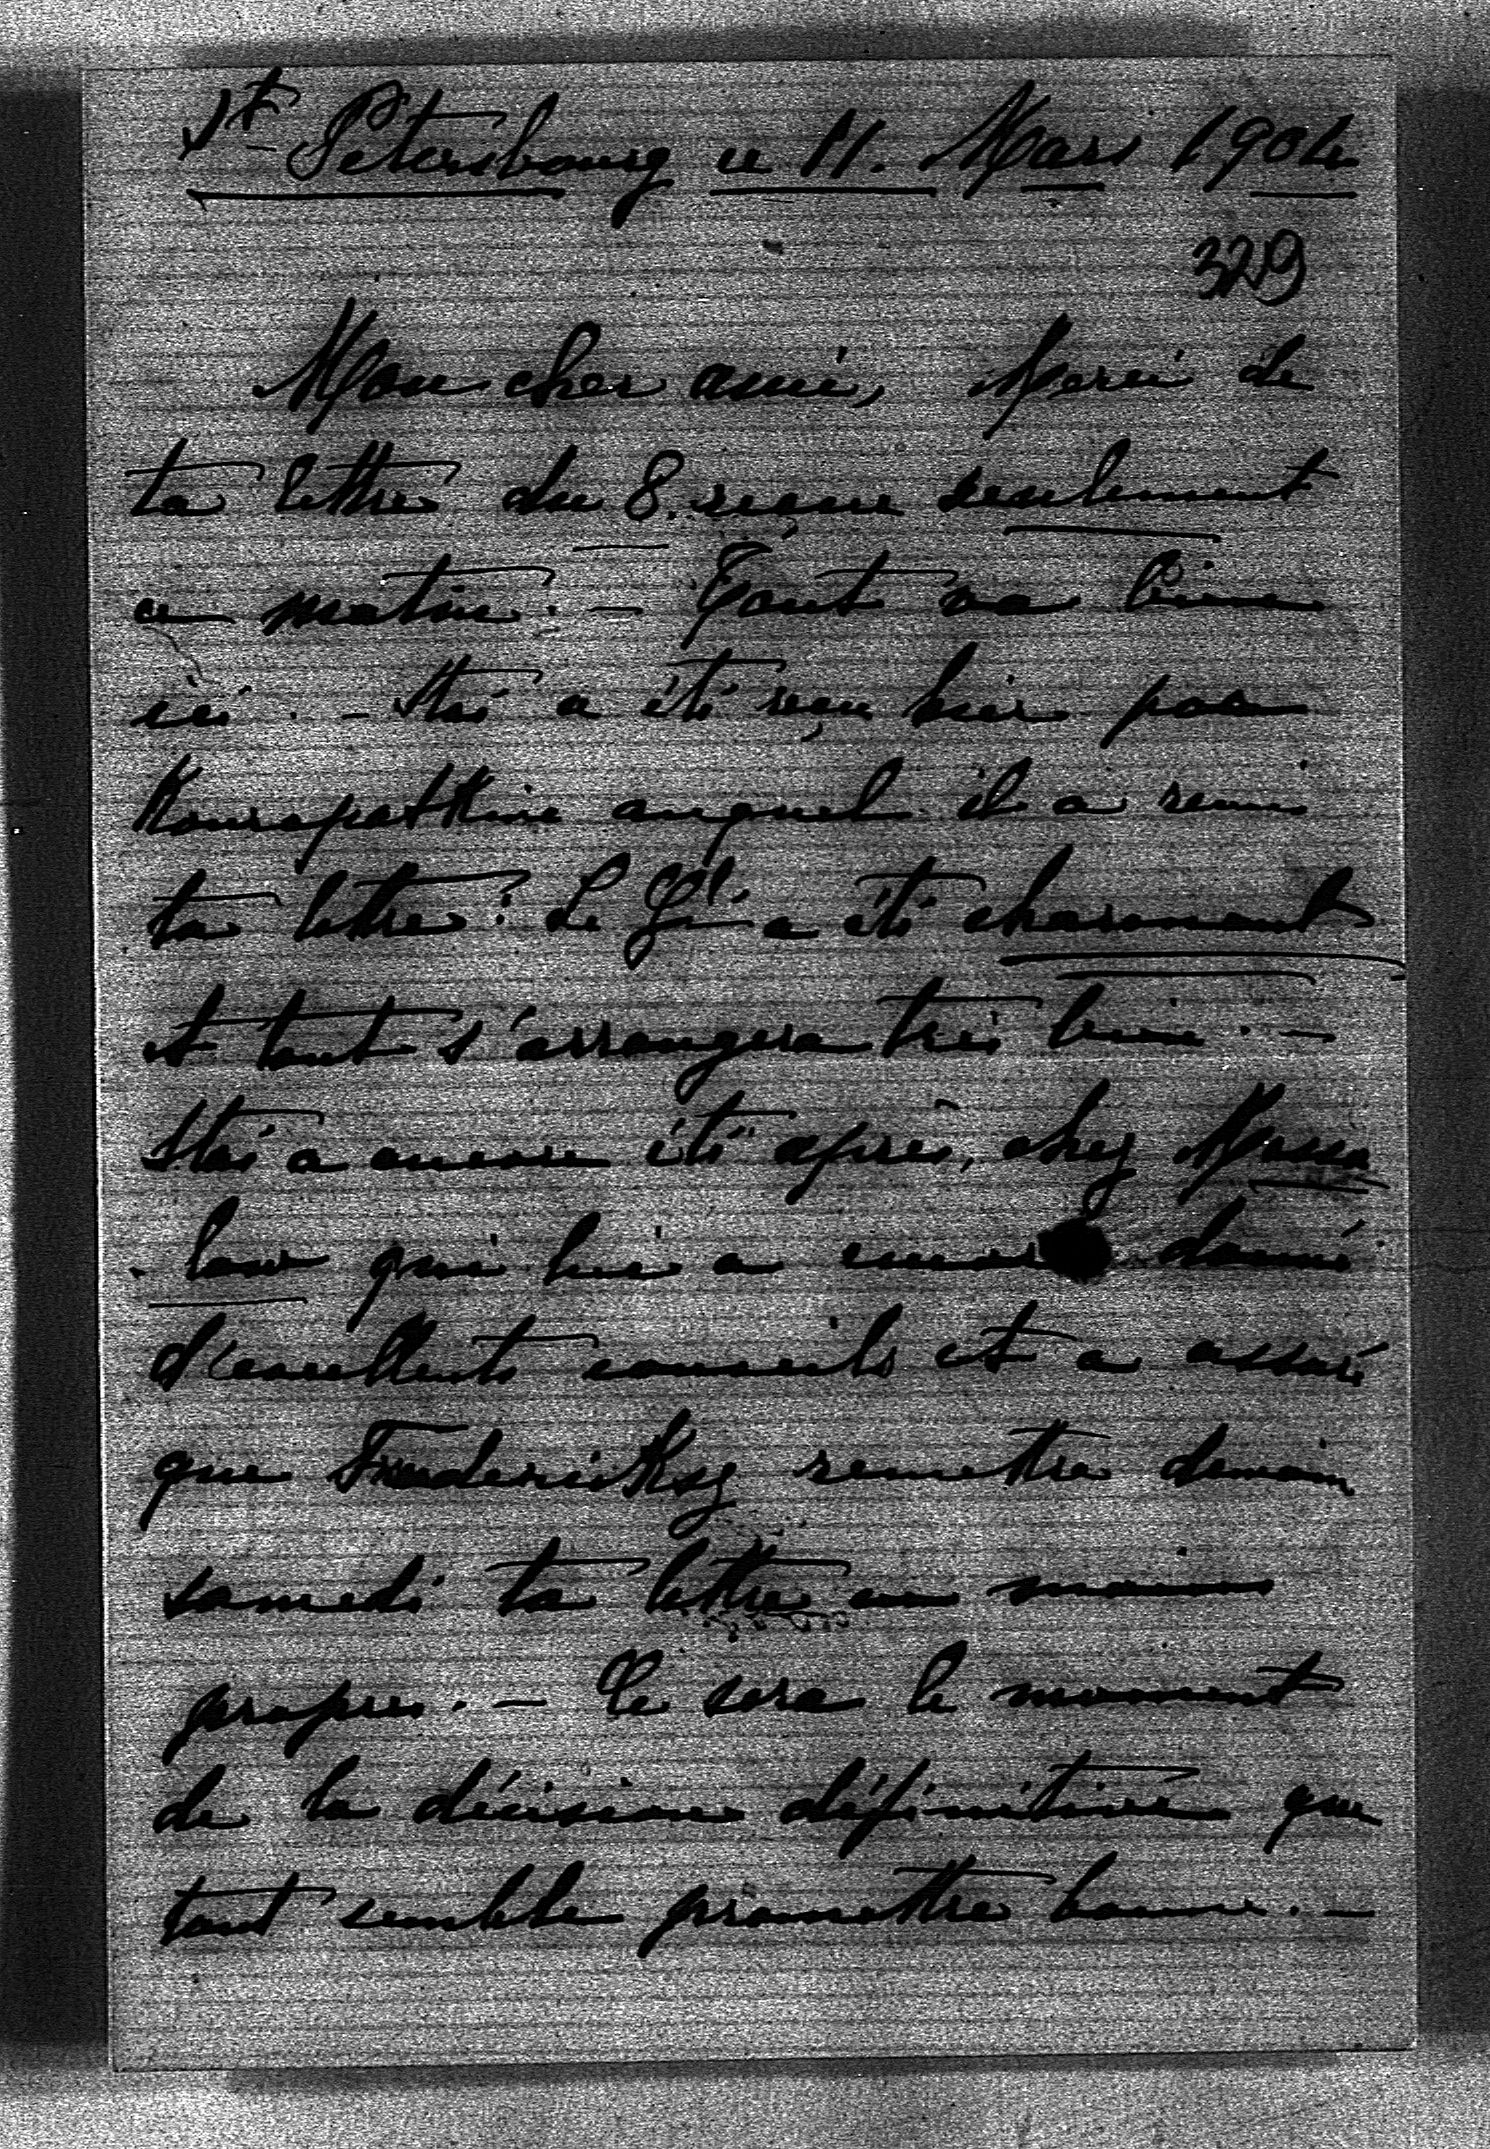 St Pétersbourg ce 11. Mars 1904
329
Mon cher ami, Merci de
ta lettre du 8. reçue seulement
ce matin. - Tout va bien
ici. - Stei a été reçu hier par
Kourapatkine auquel il a remi
ta lettre. Le Gal a été charmant
et tout s'arrangera très bien. -
Stei a encore été après, chez Mossa
-low qui lui a encore donné
d'excellents conseils et a assuré
que Fredericksz remettra demain
samedi ta lettre en mains
propres. - Ce sera le moment
de la décision définitive que
tout semble promettre bonne. -